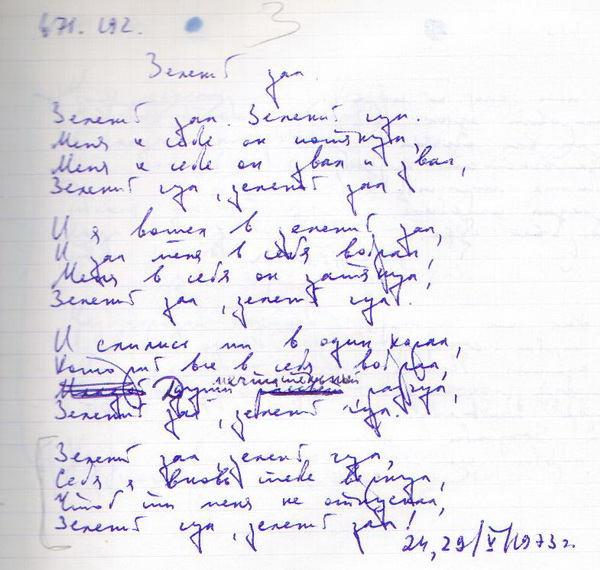 671. 292.
3
Зеленый зал.
Зеленый зал. Зеленый гул.
Меня к себе он потянул,
Меня к себе он звал и звал,
Зеленый гул, зеленый зал.
И я вошел в зеленый зал,
И зал меня в себя вобрал,
Меня в себя он затянул,
Зеленый зал, зеленый гул.
И слились мы в один хорал,
Который все в себя вобрал,
Души мечтательный разгул,
Зеленый зал, зеленый гул.
Зеленый зал, зеленый гул,
Себя я вновь тебе вернул,
Чтоб ты меня не отпускал,
Зеленый гул, зеленый зал!
24, 29/V/1973 г.